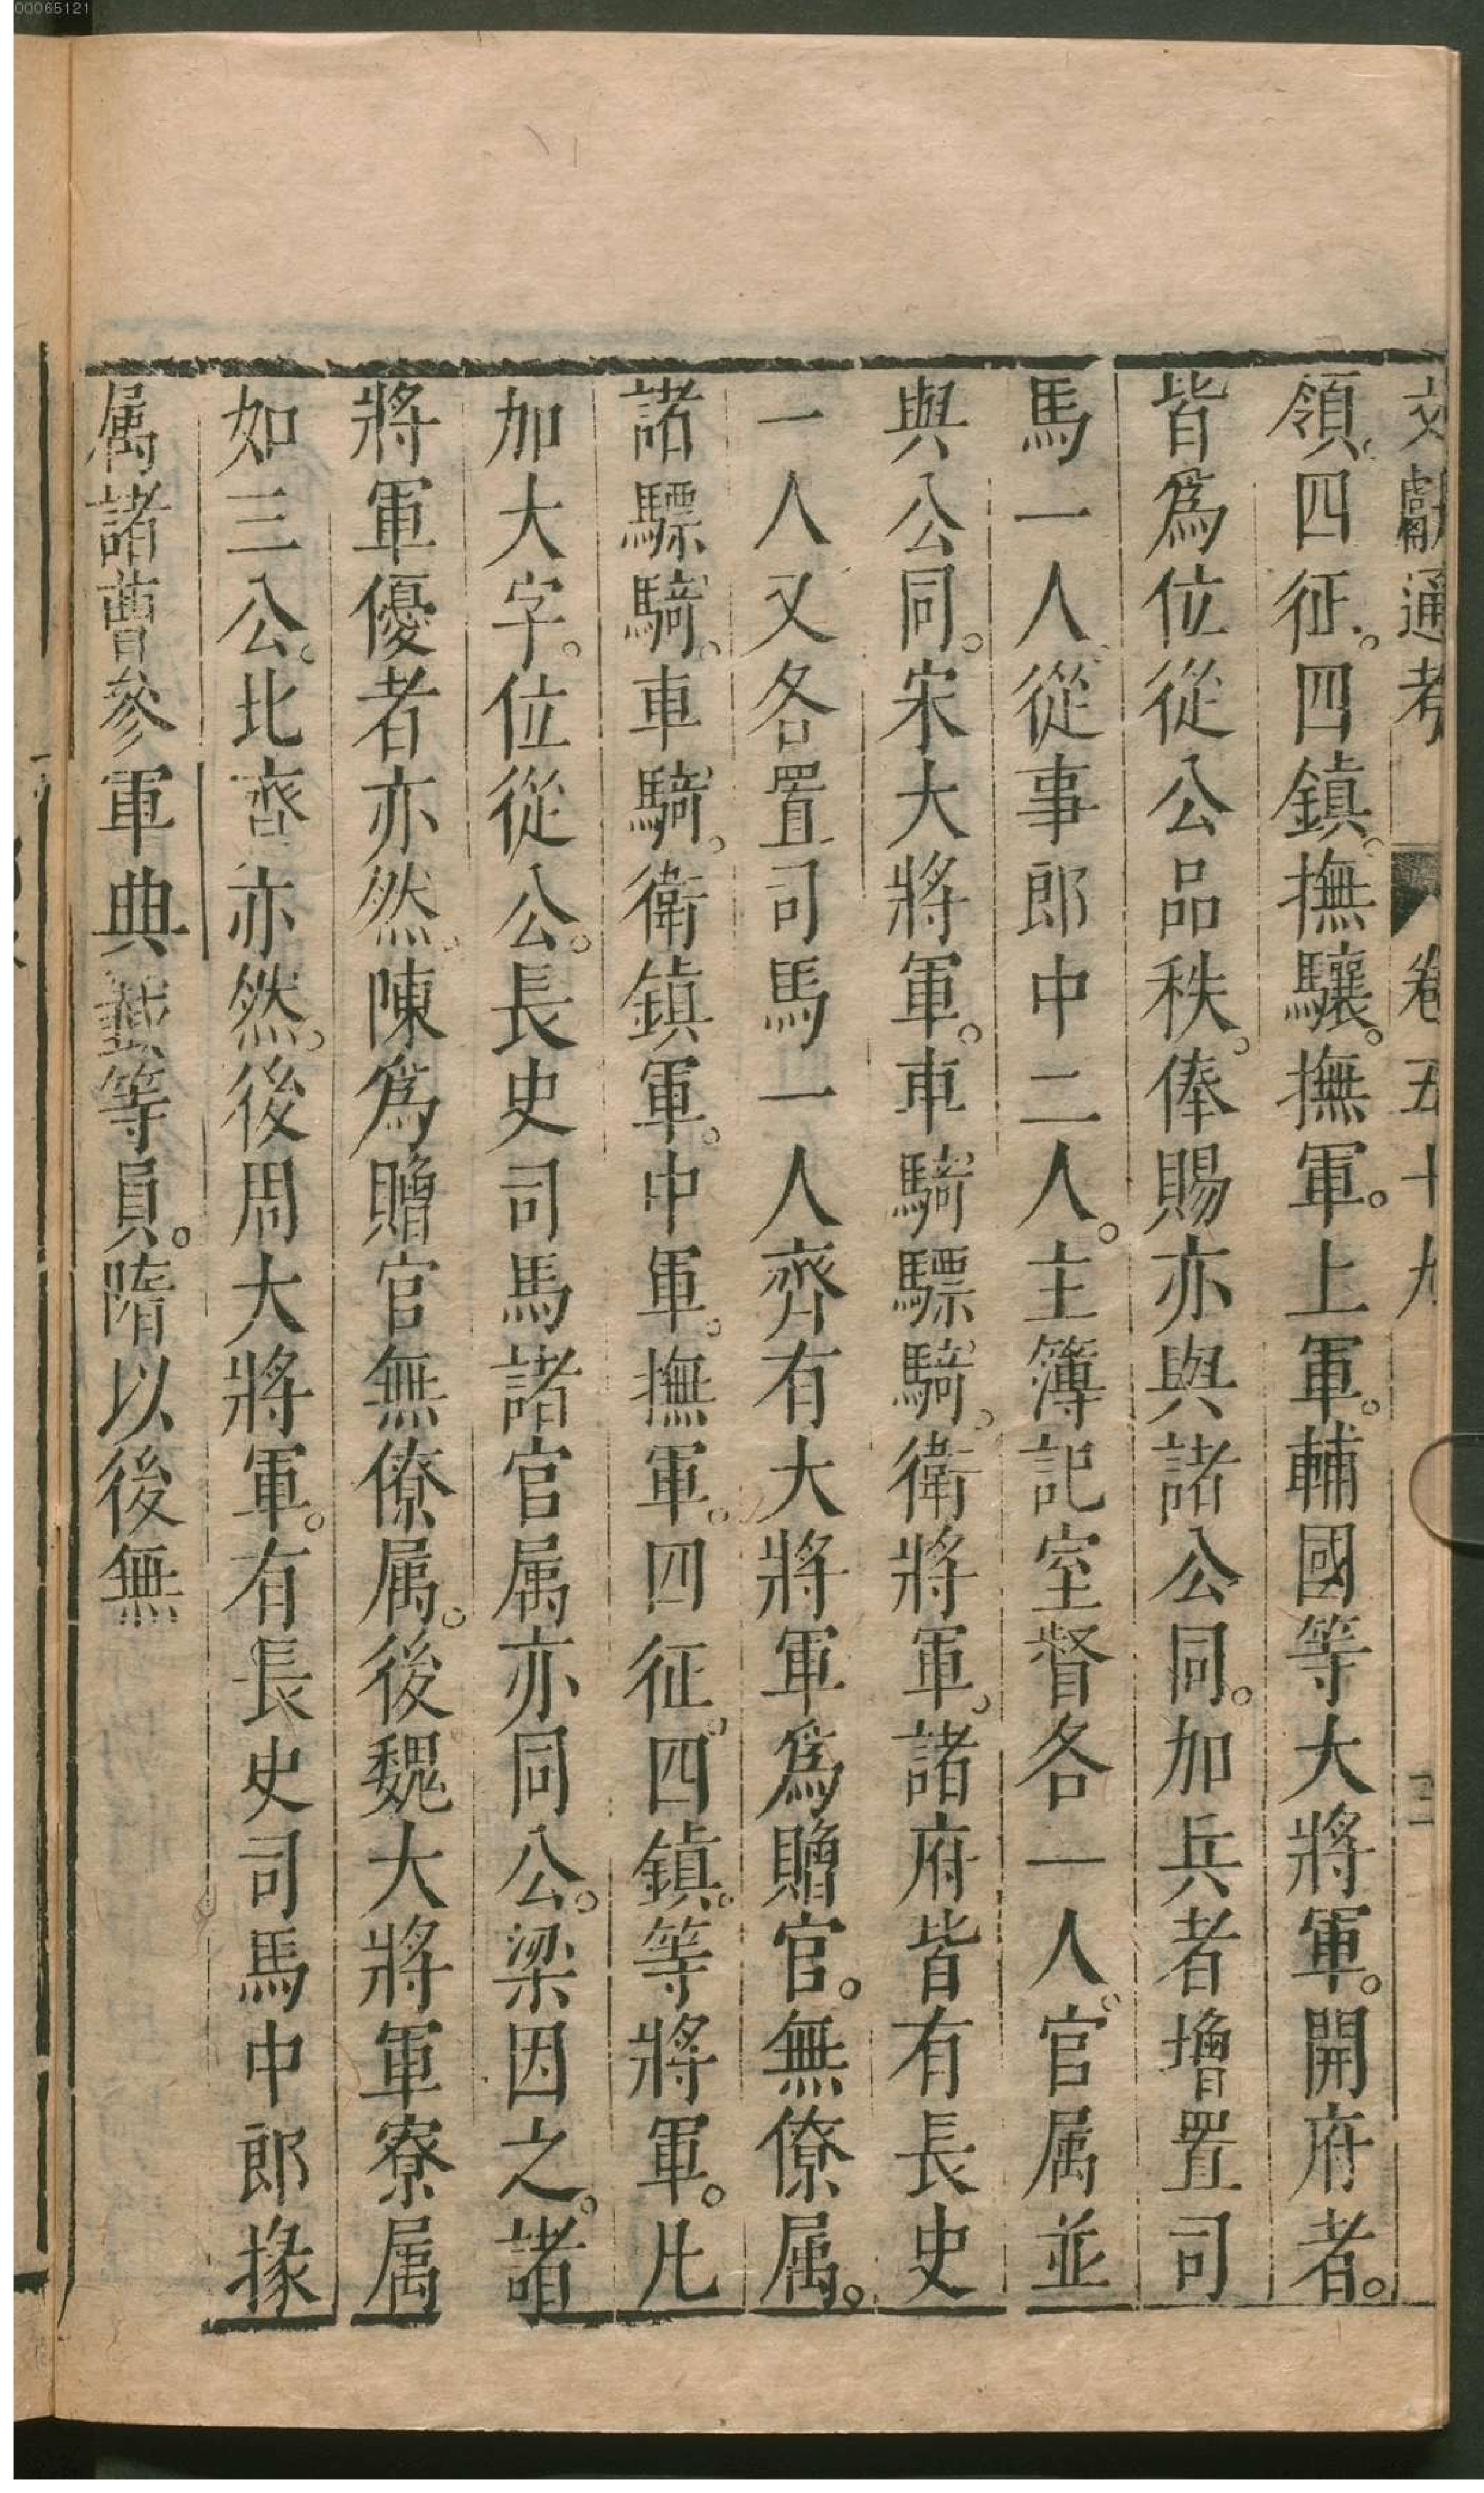 00065121
文獻通考 卷五十九 三
領。四征。四鎮。撫驤。撫軍。上軍。輔國等大將軍。開府者。
皆爲位從公品秩。俸賜亦與諸公同。加兵者增置司
馬一人。從事郎中二人。主簿記室督各一人。官属並
與公同。宋大將軍。車騎驃騎。衛將軍。諸府皆有長史
一人又各置司馬一人齊有大將軍爲贈官。無僚属。
諸驃騎。車騎。衛鎮軍。中軍。撫軍。四征。四鎮。等將軍。凡
加大字。位從公。長史司馬諸官属亦同公。梁因之。諸
將軍優者亦然。陳爲贈官無僚属。後魏大將軍寮属
如三公。北齊亦然。後周大將軍。有長史司馬中郎掾
属諸曹參軍典籤等員。隋以後無